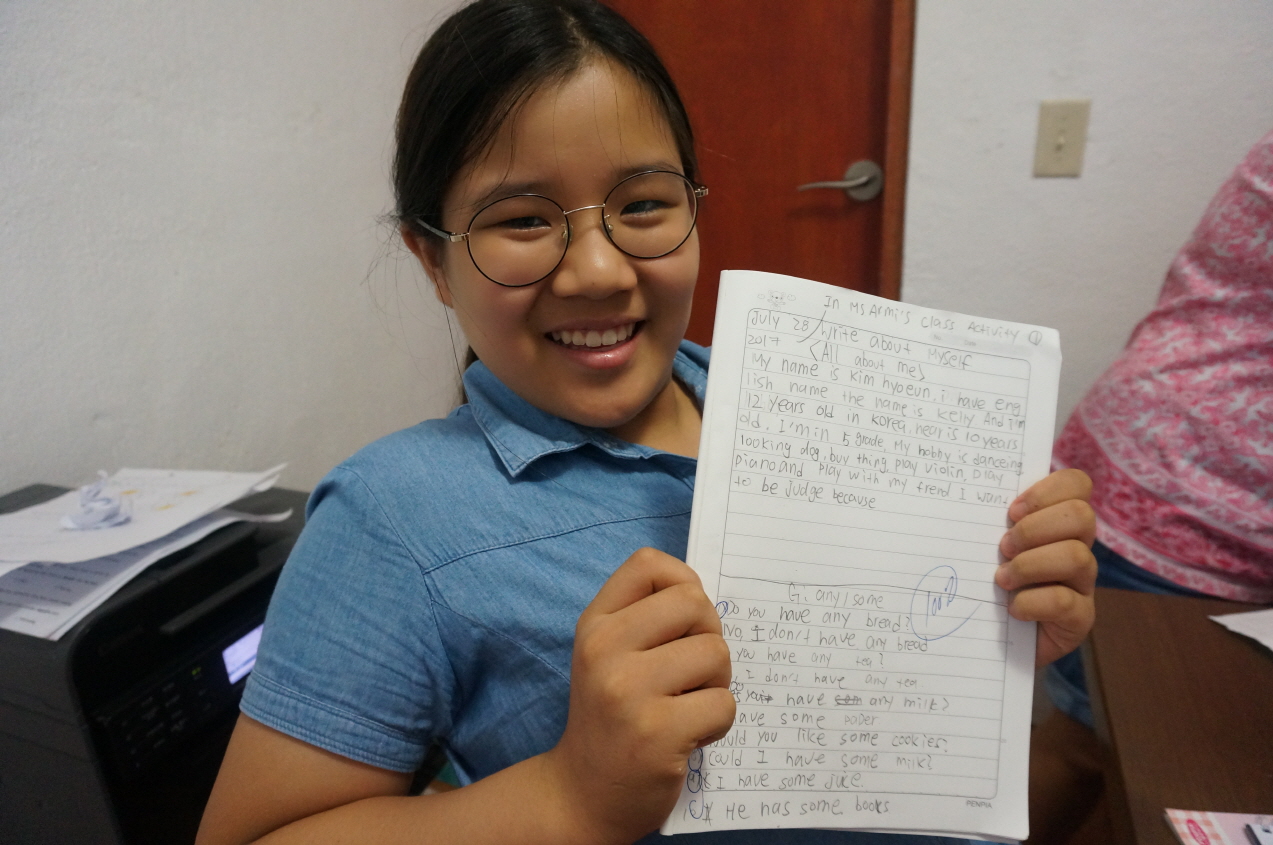 In Ms Armi's class Activity 1
July 28 write about Myself
2017 <All about me>
My name is Kim hyoeun, i have eng
lish name the name is kelly And I'm
12 years old in korea, hear is 10 years
old. I'm in 5 grade. My hobby is danceing
looking dog, buy thing, play violin, play
piano and play with my frend I want
to be judge because
G. any / some
Do you have any bread?
No, I don't have any bread
you have any tea?
I don't have any tea
have any milk?
have some paper
would you like some cookies?
Could I have some milk?
I have some juice
He has some books
PENPIA